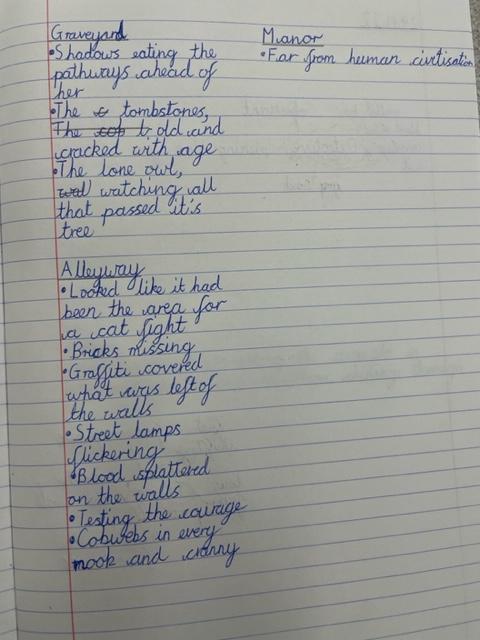 Graveyard
•Shadows eating the
pathways ahead of
her
•The tombstones,
The old and
cracked with age
•The lone owl,
watching all
that passed it's
tree
Alleyway
•Looked like it had
been the area for
a cat fight
•Bricks missing
•Graffiti covered
what was left of
the walls
•Street lamps
flickering
•Blood splattered
on the walls
•Testing the courage
•Cobwebs in every
nook and cranny
Manor
•Far from human civilisation